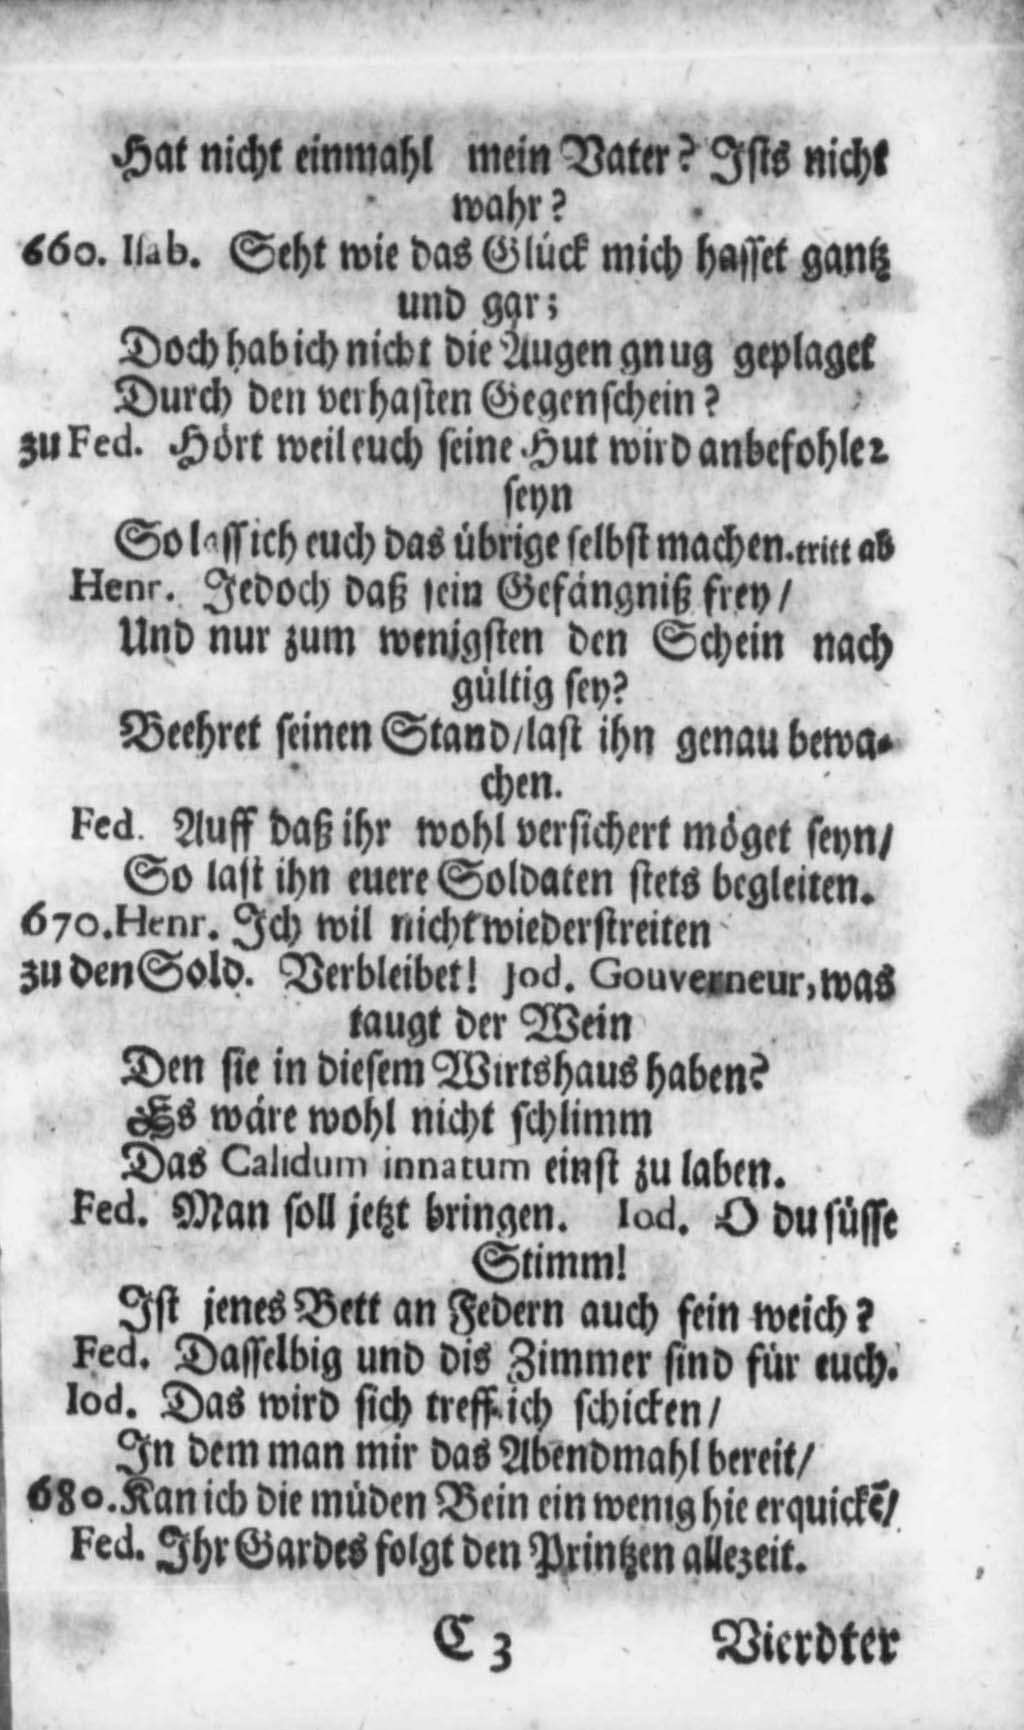 Hat nicht einmahl mein Vater? Ists nicht
wahr?
660. Isab. Seht wie das Glück mich hasset gantz
und gar;
Doch hab ich nicht die Augen gnug geplaget
Durch den verhasten Gegenschein?
zu Fed. Hört weil euch seine Hut wird anbefohlen
seyn
So lass ich euch das übrige selbst machen. tritt ab
Henr. Jedoch daß sein Gefängniß frey/
Und nur zum wenigsten den Schein nach
gültig sey?
Beehret seinen Stand/ last ihn genau bewa-
chen.
Fed. Auff daß ihr wohl versichert möget seyn/
So last ihn euere Soldaten stets begleiten.
670. Henr. Ich wil nicht wiederstreiten
zu den Sold. Verbleibet! Jod. Gouverneur, was
taugt der Wein
Den sie in diesem Wirtshaus haben?
Es wäre wohl nicht schlimm
Das Calidum innatum einst zu laben.
Fed. Man soll jetzt bringen. Iod. O du süsse
Stimm!
Ist jenes Bett an Federn auch fein weich?
Fed. Dasselbig und dis Zimmer sind für euch.
Iod. Das wird sich trefflich schicken/
In dem man mir das Abendmahl bereit/
680. Kan ich die müden Bein ein wenig hie erquickē/
Fed. Ihr Gardes folgt den Printzen allezeit.
C 3 Vierdter